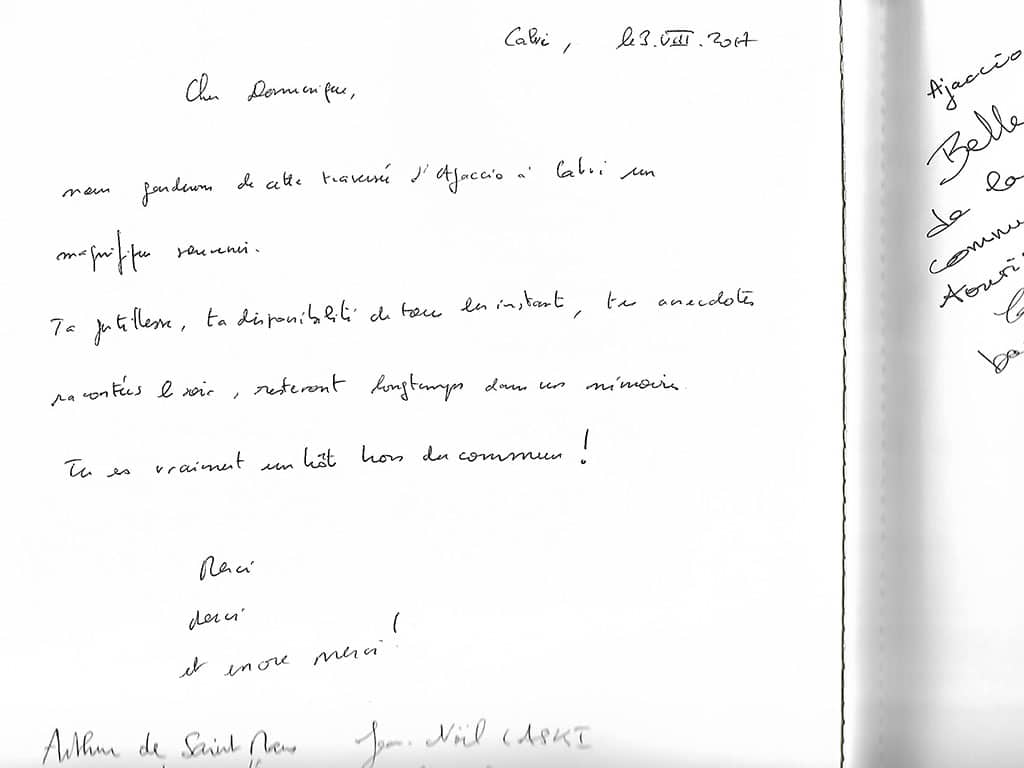 Calvi, le 3.VIII.2017
Cher Dominique,
nous garderons de cette traversée d'Ajaccio à Calvi un
magnifique souvenir.
Ta gentillesse, ta disponibilité de tous les instant, tes anecdotes
racontées le soir, resteront longtemps dans nos mémoires.
Tu es vraiment un hôt hors du commun !
Merci
merci
et encore merci !
Arthur de Saint
Jean-Noël CASKI
Ajaccio
Belle
de la
commu
touri
ba